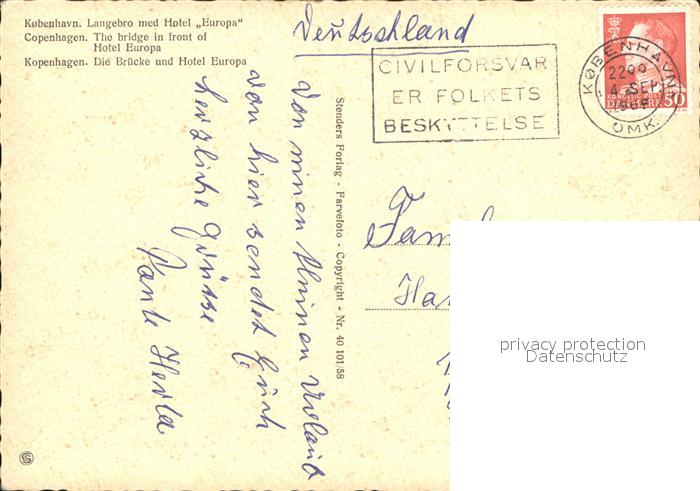 København. Langebro med Hotel „Europa"
Copenhagen. The bridge in front of
Hotel Europa
Kopenhagen. Die Brücke und Hotel Europa
Deutschland
CIVILFORSVAR
ER FOLKETS
BESKYTTELSE
KØBENHAVN
2200
4.-SEP.
OMK.
KONGELIG POST
DANMARK 50
Von meinen kleinen Urlaub
von hier sendet Euch
herzliche Grüsse
Tante Herta
Stenders Forlag - Farvefoto - Copyright - Nr. 40 101/58
Fam
Ha
privacy protection
Datenschutz